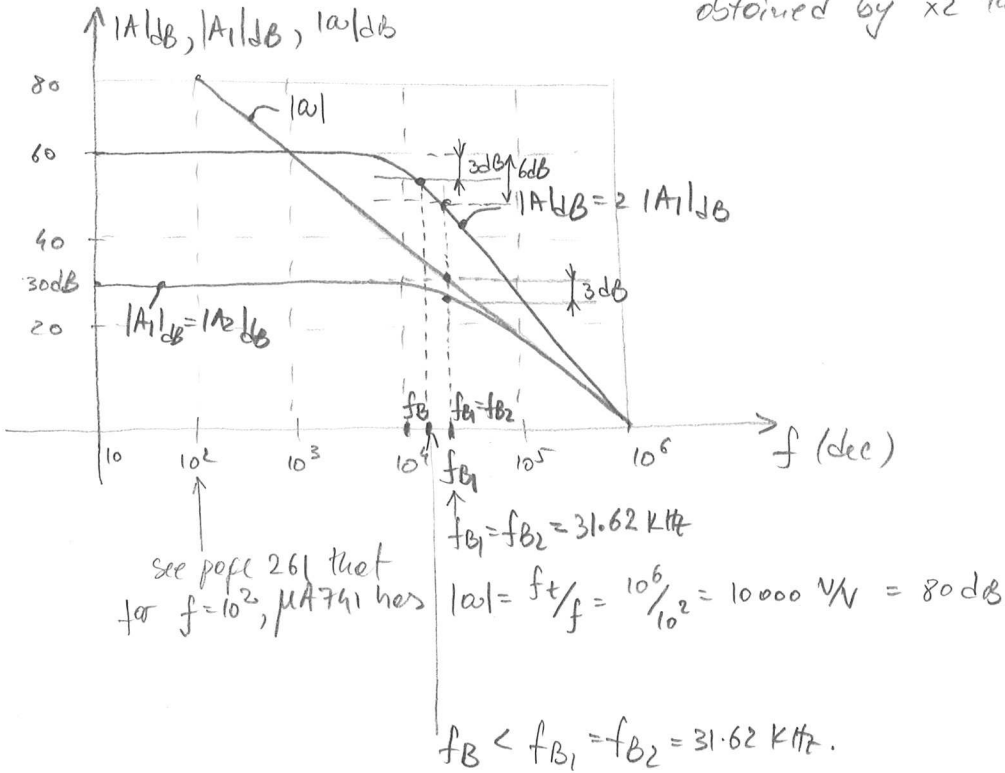 obtained by x2
|A|dB, |A1|dB, |a|dB
80
|a|
60
3dB 6dB
|A|dB = 2 |A1|dB
40
30dB
3dB
|A1|dB = |A2|dB
20
fB fB1=fB2
10 10² 10³ 10⁴ 10⁵ 10⁶ f (dec)
fB1
fB1 = fB2 = 31.62 KHz
see page 261 that
for f=10², μA741 has |a| = ft/f = 10⁶/10² = 10000 V/V = 80dB
fB < fB1 = fB2 = 31.62 KHz.